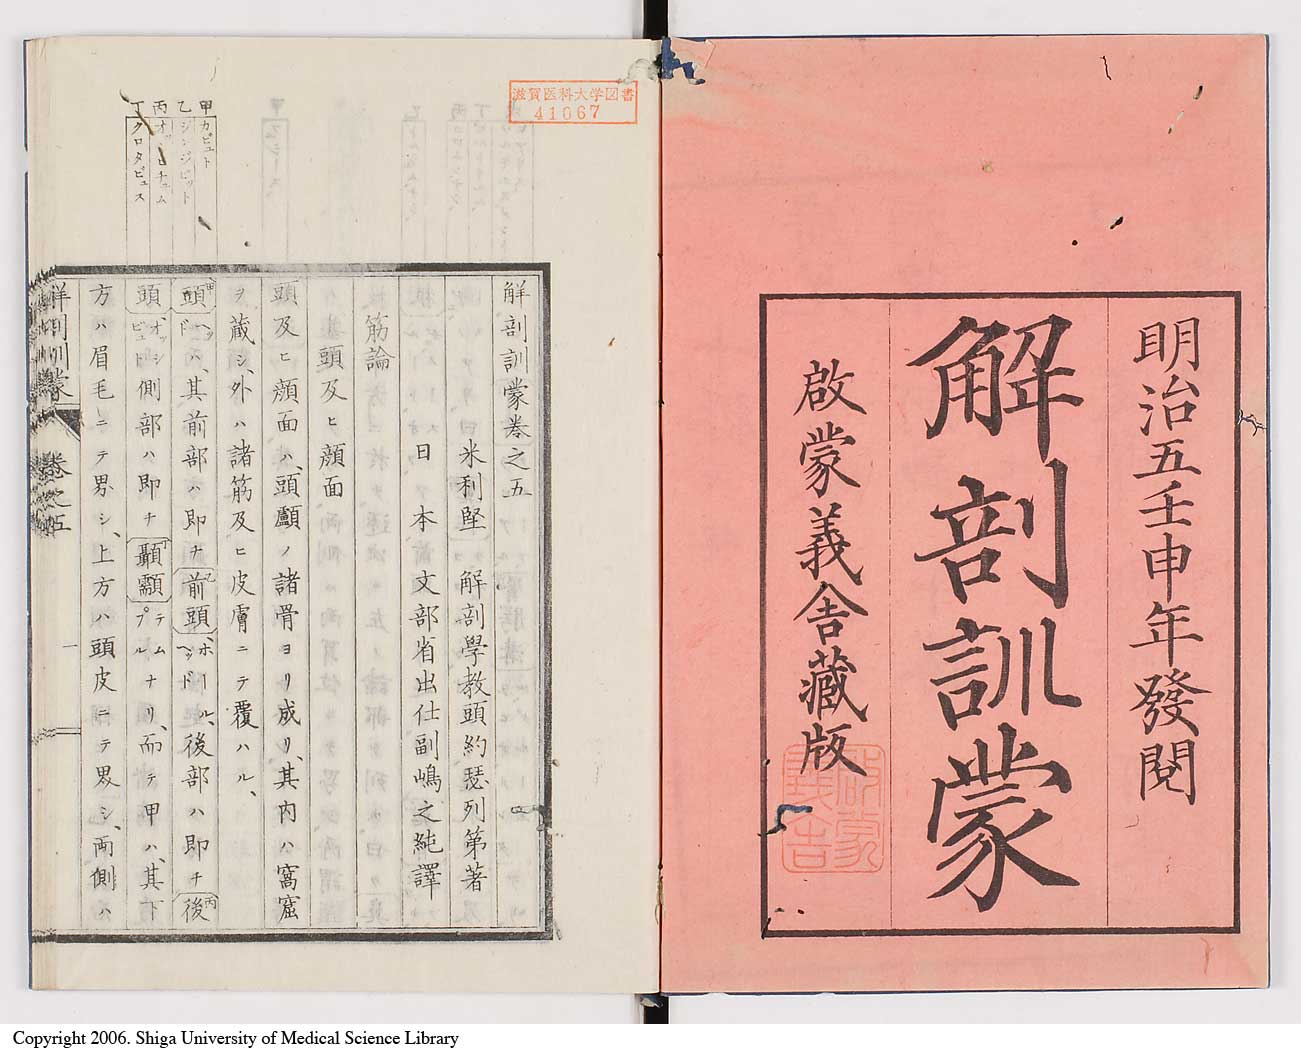 明治五壬申年發閱
解剖訓蒙
啟蒙義舎藏版
啟蒙義舎
滋賀医科大学図書
41067
甲カピュト
乙シンジピット
丙オッ
丁クロタピュス
解剖訓蒙卷之五
米利堅 解剖學教頭約瑟列第著
日本文部省出仕副嶋之純譯
筋論
頭及ヒ顔面
頭及ヒ顔面ハ、頭顱ノ諸骨ヨリ成リ、其内ハ窩窟
ヲ蔵シ、外ハ諸筋及ヒ皮膚ニテ覆ハル、
甲頭ヘッドハ、其前部ハ即チ乙前頭ホールヘッド、後部ハ即チ丙後
頭オッシピュト、側部ハ即チ丁顳顬テムプルナリ、而テ甲ハ、其下
方ハ眉毛ニテ界シ、上方ハ頭皮ニテ界シ、両側ハ
解剖訓蒙 卷之五
一
Copyright 2006. Shiga University of Medical Science Library